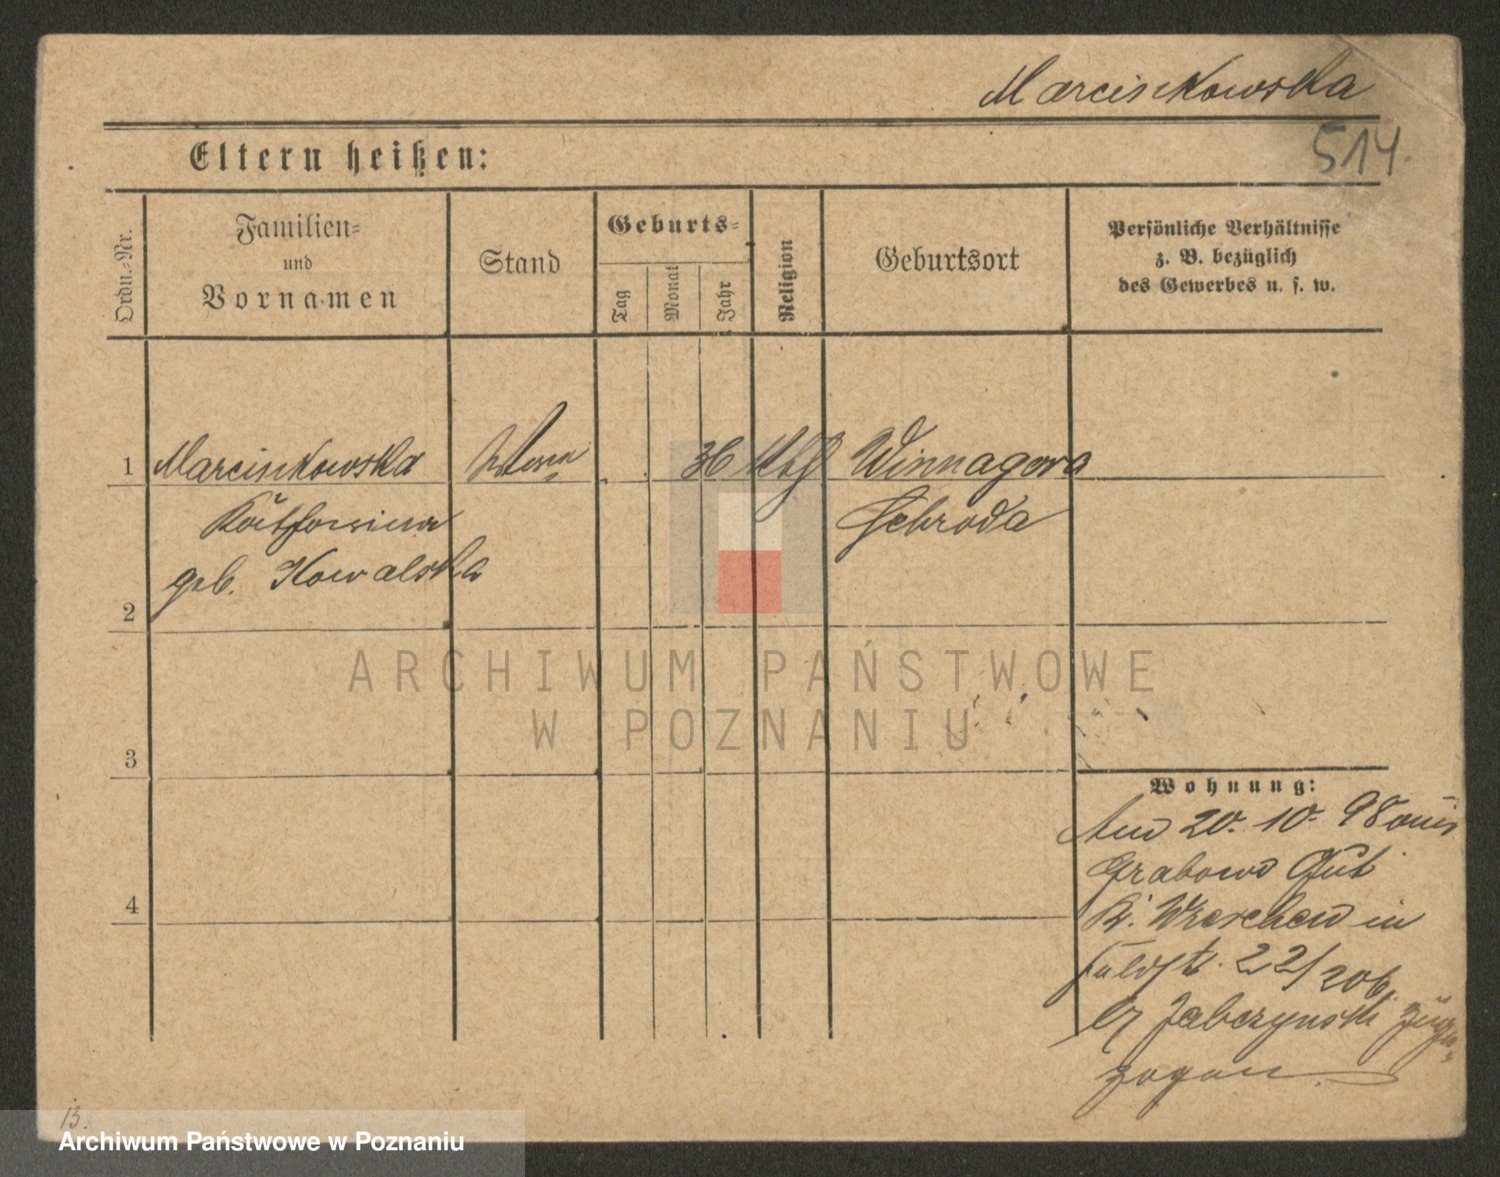 Marcinkowska
514
Eltern heißen:
Ordn.-Nr.
Familien=
und
Vornamen
Stand
Geburts=
Tag
Monat
Jahr
Religion
Geburtsort
Persönliche Verhältnisse
z. B. bezüglich
des Gewerbes u. s. w.
1 Marcinkowska 36 kth Winnagora
Schroda
geb. Kowalska
2
ARCHIWUM PAŃSTWOWE
W POZNANIU
3
Wohnung:
20. 10. 98 aus
Grabowo Gut
Kr. Wreschen in
Feldstr. 22/
Jabczynski zuge=
zogen.
4
13.
Archiwum Państwowe w Poznaniu